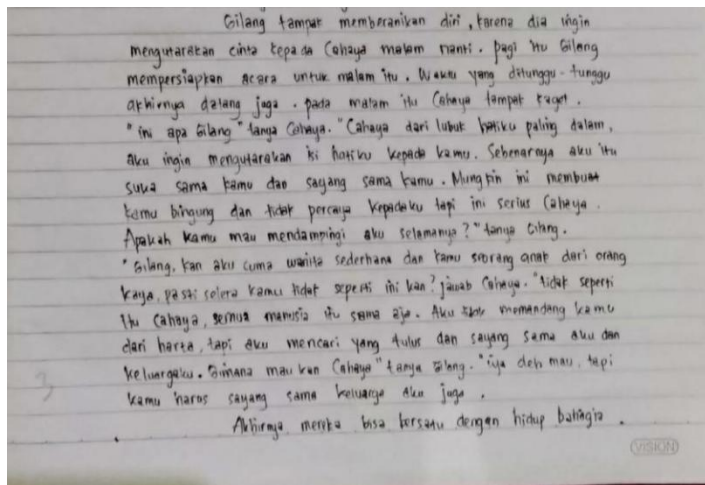 Gilang tampak memberanikan diri, karena dia ingin
mengutarakan cinta kepada Cahaya malam nanti. pagi itu Gilang
mempersiapkan acara untuk malam itu. Waktu yang ditunggu-tunggu
akhirnya datang juga. pada malam itu Cahaya tampak kaget.
"ini apa Gilang" tanya Cahaya. "Cahaya dari lubuk hatiku paling dalam,
aku ingin mengutarakan isi hatiku kepada kamu. Sebenarnya aku itu
suka sama kamu dan sayang sama kamu. Mungkin ini membuat
kamu bingung dan tidak percaya kepadaku tapi ini serius Cahaya.
Apakah kamu mau mendampingi aku selamanya?" tanya Gilang.
"Gilang, kan aku cuma wanita sederhana dan kamu seorang anak dari orang
kaya, pasti selera kamu tidak seperti ini kan? jawab Cahaya. "tidak seperti
itu Cahaya, semua manusia itu sama aja. Aku tidak memandang kamu
dari harta, tapi aku mencari yang tulus dan sayang sama aku dan
keluargaku. Gimana mau kan Cahaya" tanya Gilang. "iya deh mau, tapi
kamu harus sayang sama keluarga aku juga.
Akhirnya mereka bisa bersatu dengan hidup bahagia.
3
VISION